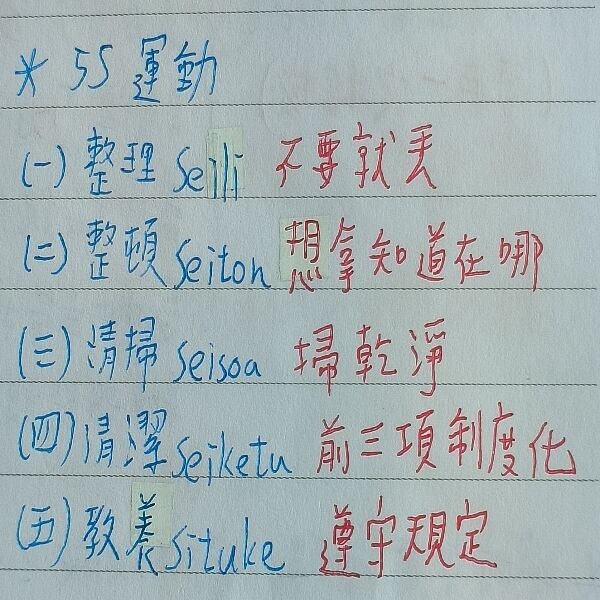 * 5S 運動
(一) 整理 seili 不要就丟
(二) 整頓 seiton 想拿知道在哪
(三) 清掃 seisoa 掃乾淨
(四) 清潔 seiketu 前三項制度化
(五) 教養 situke 遵守規定